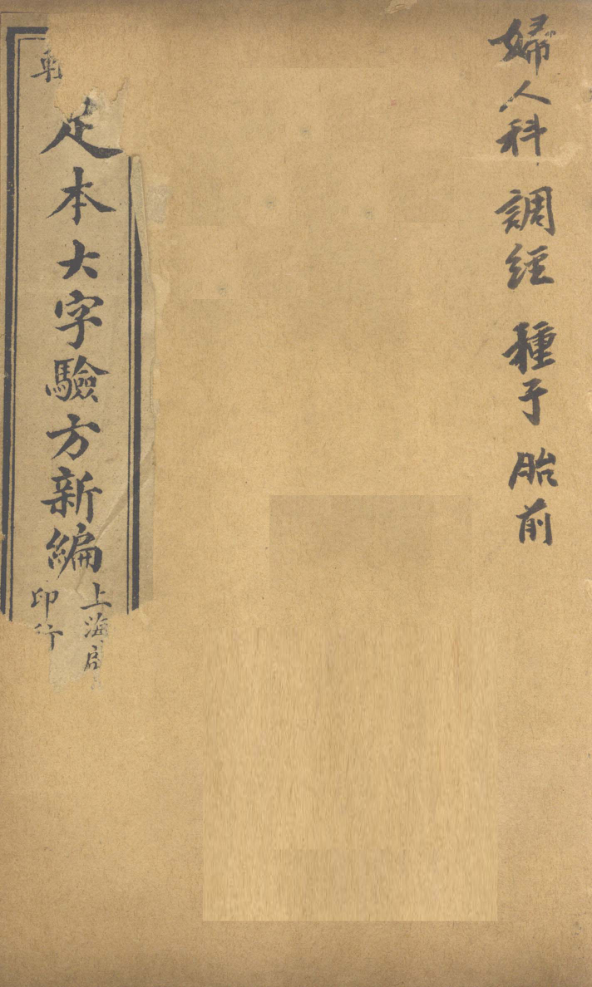 婦人科 調經 種子 胎前
足本大字驗方新編
上海
印行